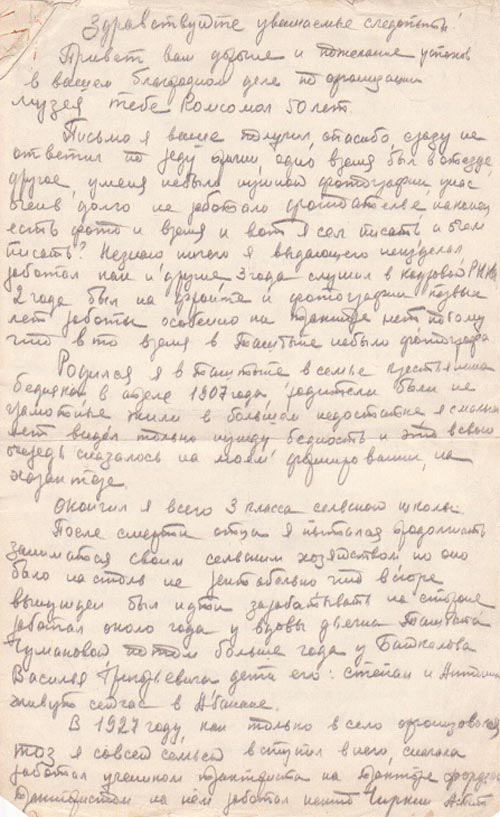 Здравствуйте уважаемые следопыты!
Привет вам добрые и пожелание успехов
в вашем благородном деле по организации
музея тебе Комсомол 50 лет.
Письмо я ваше получил, спасибо, сразу не
ответил по ряду причин, одно время был в отъезде,
другое, у меня небыло нужной фотографии, у нас
очень долго не работало фотоателье, наконец
есть фото и время и вот я сел писать, а о чем
писать? Незнаю ничего я выдающего неизделал
работал как и другие, 3 года служил в кадровой РККА
2 года был на фронте и фотографии первых
лет работы особенно на тракторе нет потому
что в то время в Таштыпе небыло фотографа
Родился я в Таштыпе в семье крестьянина
бедняка в апреле 1907 года, родители были не
грамотные жили в большом недостатке я с малых
лет видел только нужду бедность и это в свою
очередь сказалось на моем формировании, на
характере.
Окончил я всего 3 класса сельской школы.
После смерти отца я пытался продолжить
заниматся своим сельским хозяйством но оно
было настоль не рентабельно что вскоре
вынужден был идти зарабатывать на стороне
работал около года у вдовы дьячка Таштыпа
Чумановой потом больше года у Байкалова
Василья Григорьевича дети его: степан и Антонина
живут сейчас в Абакане.
В 1927 году, как только в село организовался
тоз я со всей семьей вступил в него, сначала
работал учеником тракториста на тракторе фордзон
трактористом на нем работал некто Чиркин